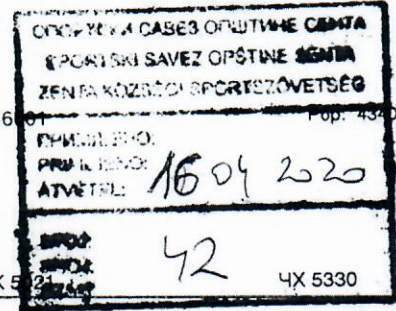 СПОРТСКИ САВЕЗ ОПШТИНЕ СЕНТА
SPORTSKI SAVEZ OPŠTINE SENTA
ZENTA KÖZSÉGI SPORTSZÖVETSÉG
ПРИМЉЕНО:
PRIMLJENO:
ÁTVÉTEL:
16 04 2020
42
ЧХ 5330